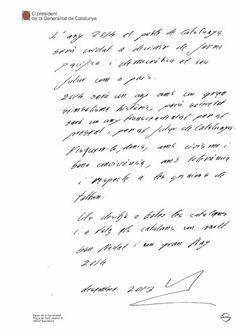 El president
de la Generalitat de Catalunya
L'any 2014 el poble de Catalunya
serà cridat a decidir de forma
pacífica i democràtica el seu
futur com a país.
2014 serà un any amb un gran
simbolisme històric, però sobretot
serà un any transcendental per al
present i per al futur de Catalunya.
amb civisme i
bona convivència, amb tolerància
i respecte a les opinions de
tothom.
Us desitjo a totes les catalanes
i a tots els catalans un molt
bon Nadal i un gran Any
2014
desembre 2013
Palau de la Generalitat